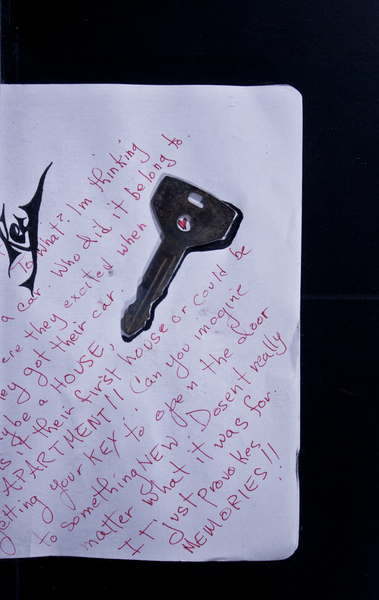 Key
To what? Im thinking
a car. Who did it belong to.
ere they excited when
hey got their car.
ybe a HOUSE,
s it their first house or could be
APARTMENT!! Can you imagine
getting your KEY to open the door
to something NEW. Dosent really
matter what it was for.
IT just Provokes
MEMORIES!!